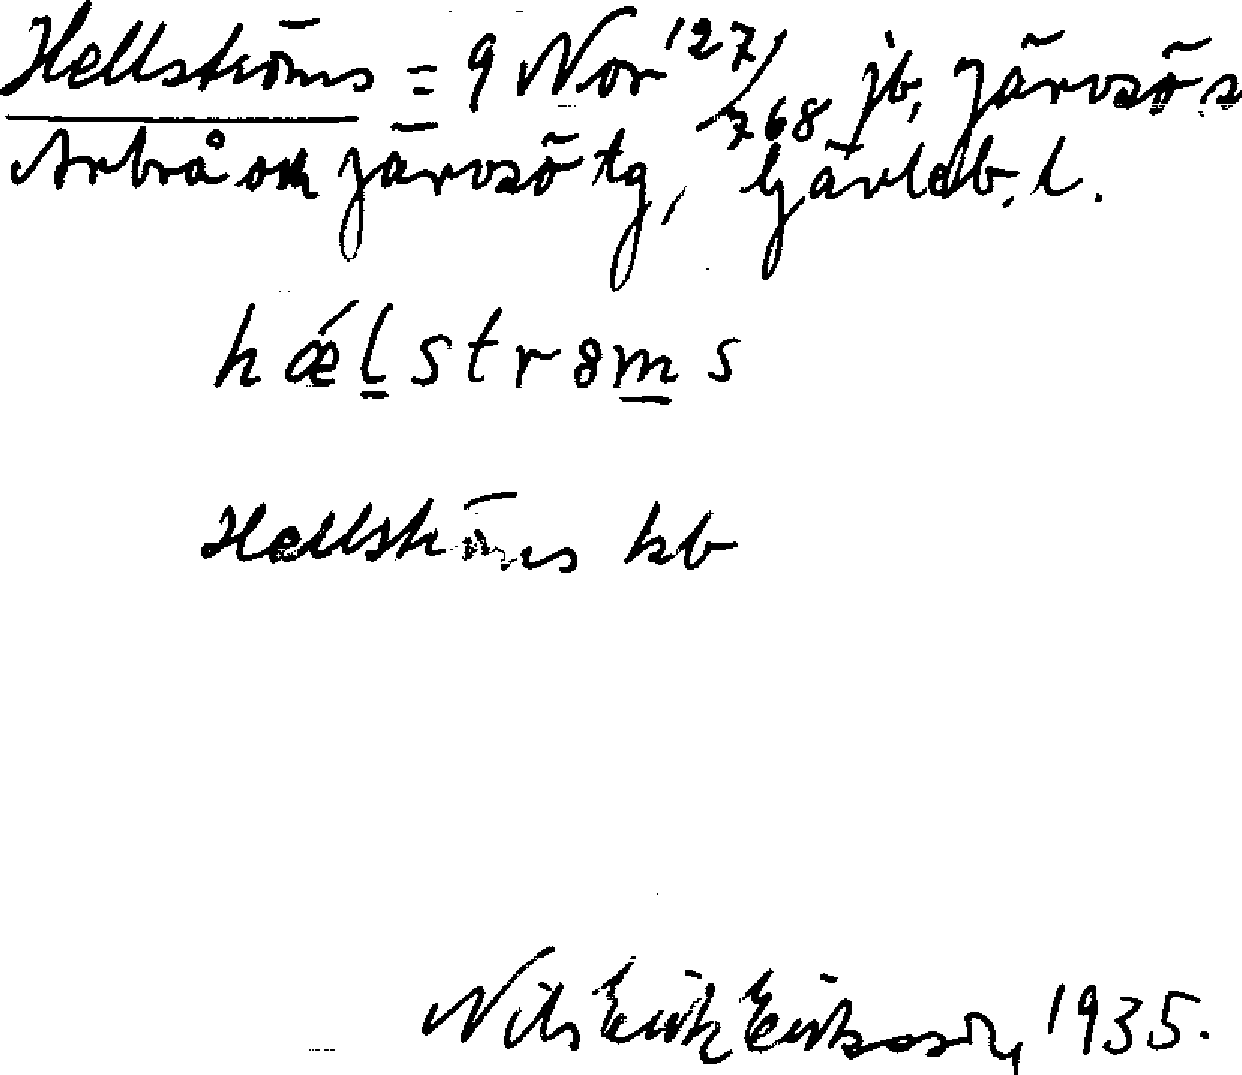 Hellströms = 9 Nor 127/768 jb, Järvsö s
Arbrå och Järvsö tg, Gävleb. l.
hǽl̲strøm̲s
Hellströms kb
Nils Erik Eriksson, 1935.